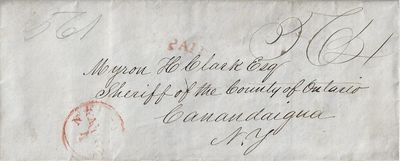 PAID
Myron H Clark Esq
Sheriff of the County of Ontario
Canandaigua
N.Y